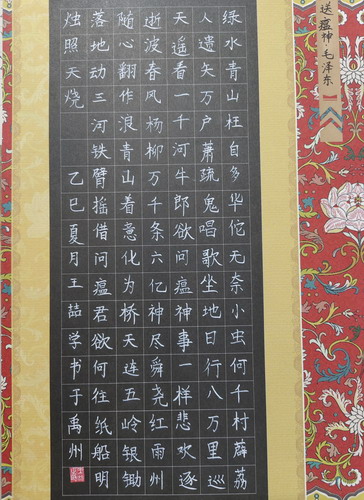 送瘟神·毛泽东
绿水青山枉自多华佗无奈小虫何千村薜荔
人遗矢万户萧疏鬼唱歌坐地日行八万里巡
天遥看一千河牛郎欲问瘟神事一样悲欢逐
逝波春风杨柳万千条六亿神尽舜尧红雨州
随心翻作浪青山着意化为桥天连五岭银锄
落地动三河铁臂摇借问瘟君欲何往纸船明
烛照天烧 乙巳夏月王喆学书于禹州